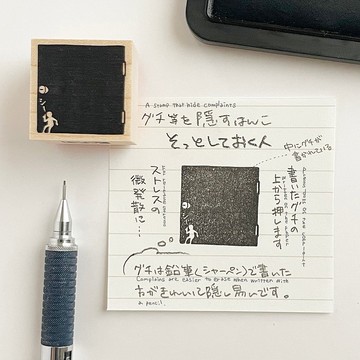 A stamp that hide complaints
グチ等を隠すはんこ
そっとしておく人
中にグチが
書かれている
書いたグチの
上から押します
ストレスの
微発散に…
シー
シー
グチは鉛筆(シャーペン)で書いた
Complains are easier to erase when written with
方がきれいで隠し易いです。
a pencil.